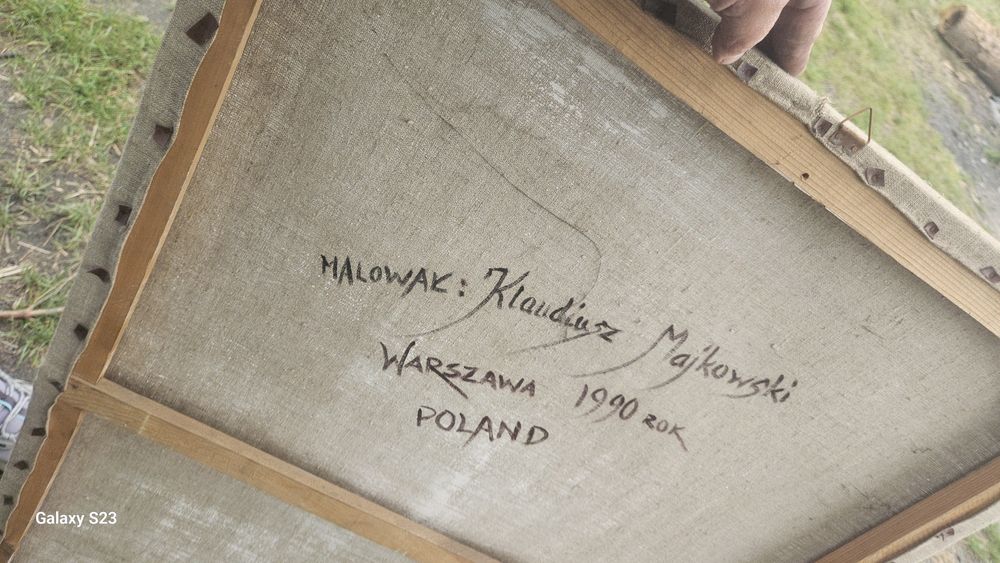 MALOWAŁ: Klaudiusz Majkowski
WARSZAWA 1990 ROK
POLAND
Galaxy S23